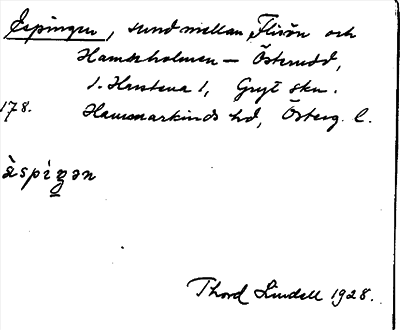 Espingen, sund mellan Flisön och
Hamnholmen – Österudd,
1. Harstena 1, Gryt skn.
178. Hammarkinds hd, Österg. l.
äspiŋən
Thord Lindell 1928.